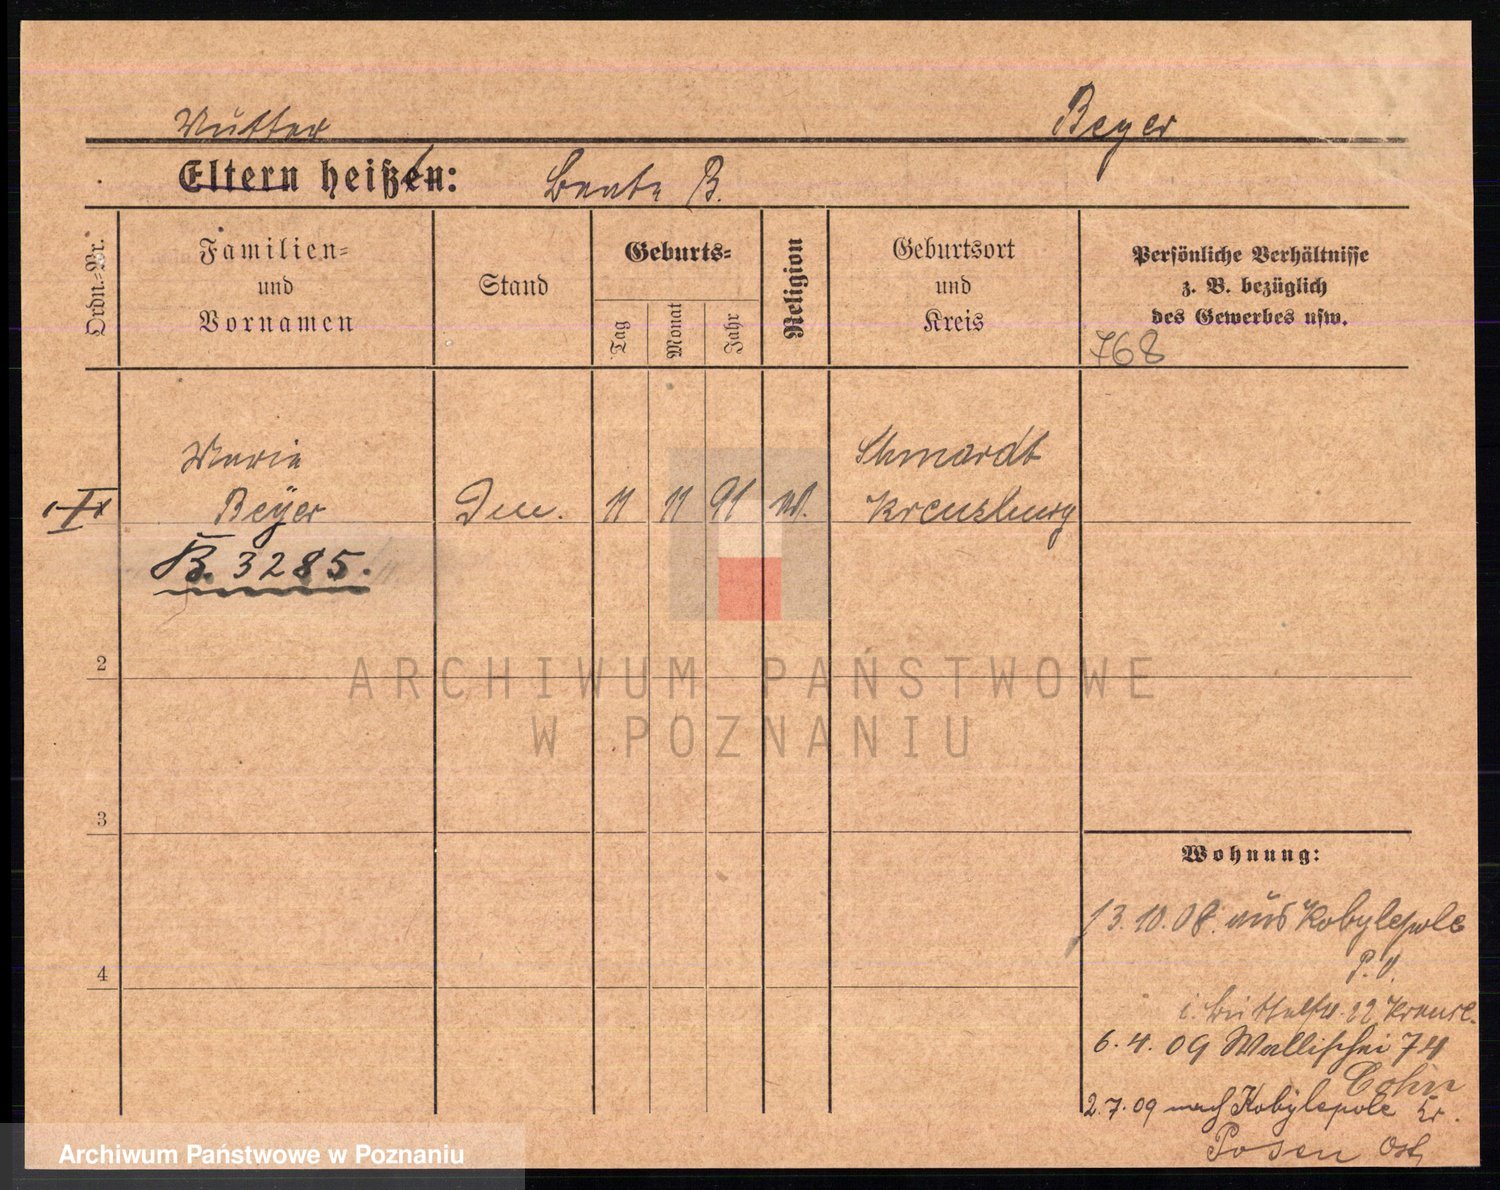 Mutter
Beyer
Eltern heißen:
B.
Ordn.-Nr.
Familien-
und
Vornamen
Stand
Geburts-
Tag
Monat
Jahr
Religion
Geburtsort
und
Kreis
Persönliche Verhältnisse
z. B. bezüglich
des Gewerbes usw.
768
Marie
Beyer
11
11
91
Schmardt
Kreuzburg
B. 3285.
2
ARCHIWUM PAŃSTWOWE
W POZNANIU
3
4
Wohnung:
13.10.08. aus Kobylepole
P. O.
22
6.4.09 Wallischei 74
Cohn
2.7.09 nach Kobylepole Kr.
Posen Ost
Archiwum Państwowe w Poznaniu